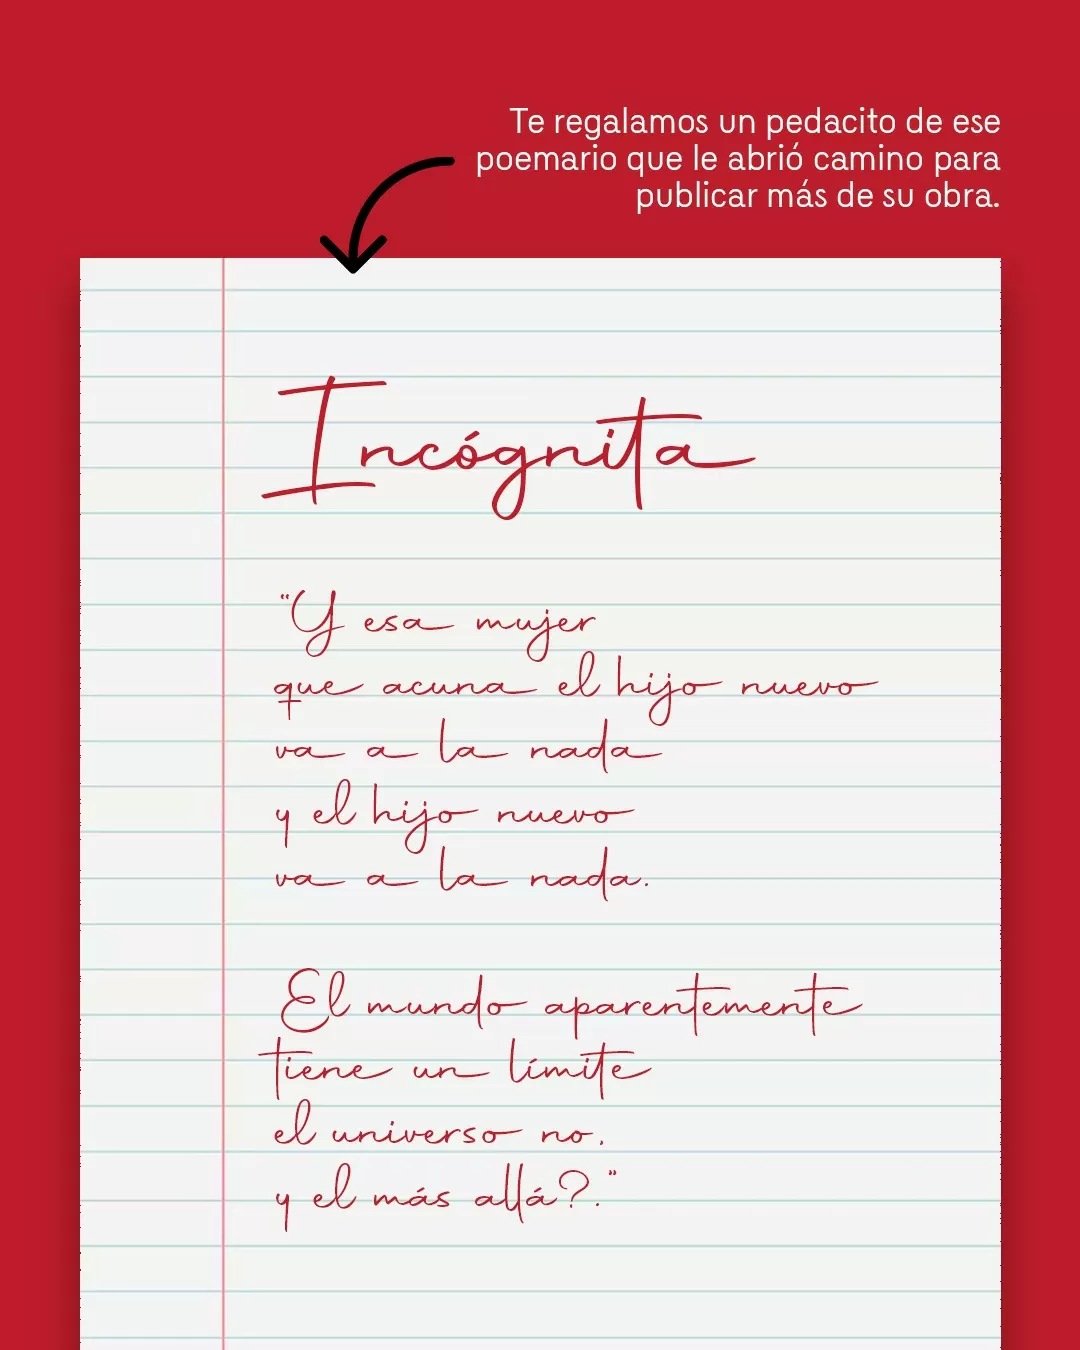 Te regalamos un pedacito de ese
poemario que le abrió camino para
publicar más de su obra.
Incógnita
"Y esa mujer
que acuna el hijo nuevo
va a la nada
y el hijo nuevo
va a la nada.
El mundo aparentemente
tiene un límite
el universo no.
y el más allá?."